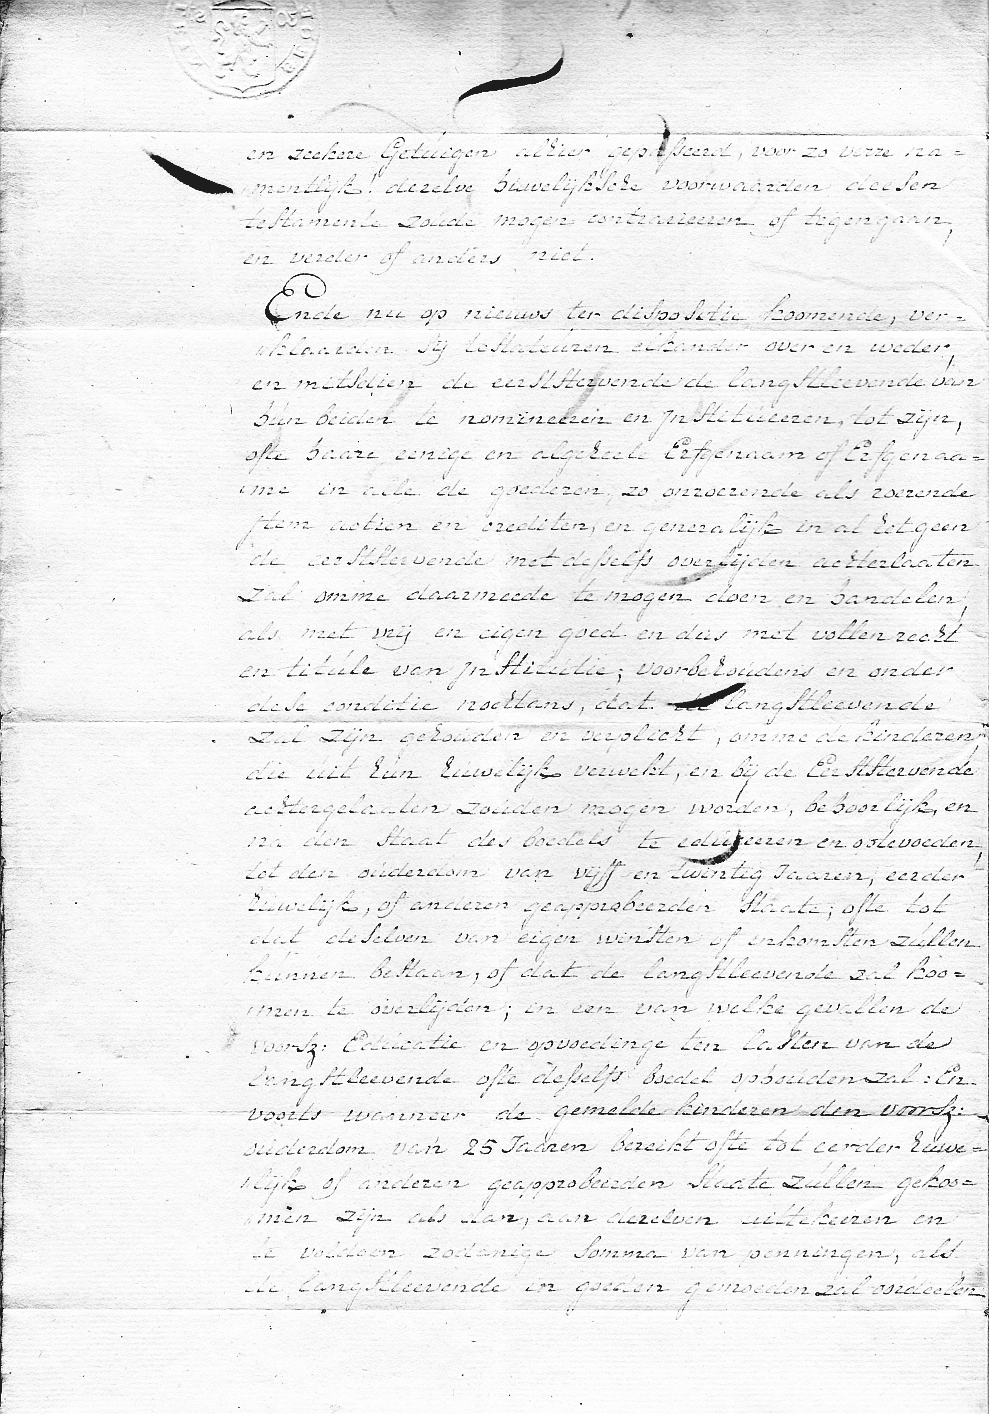 en zeekere Getuigen alhier gepasseerd, voor zo verre na=
mentlijk! dezelve huwelijksche voorwaarden deesen
testamente zoude mogen contrarieeren of tegengaan,
en verder of anders niet.
Ende nu op nieuws ter dispositie koomende, ver=
klaarden sij testateuren elkander over en weder,
en mitsdien de eerststervende de langstleevende van
hun beiden te nomineeren en Jnstitueeren, tot zijn,
ofte haare eenige en algeheele Erfgenaam of Erfgenaa=
me in alle de goederen, zo onroerende als roerende
Jtem actien en crediten, en generalijk in al het geen
de eerststervende met desselfs overlijden achterlaaten
zal omme daarmeede te mogen doen en handelen,
als met vrij en eigen goed en dus met vollen recht
en titule van Jnstitutie; voorbehoudens en onder
dese conditie nochtans, dat de langstleevende
zal zijn gehouden en verplicht, omme de kinderen,
die uit hun huwelijk verwekt, en bij de Eerststervende
achtergelaaten zouden mogen worden, behoorlijk, en
na den staat des boedels te educeeren en optevoeden,
tot den ouderdom van vijff en twintig Jaaren, eerder
huwelijk, of anderen geapprobeerden staate; ofte tot
dat deselven van eigen winsten of inkomsten zullen
kunnen bestaan, of dat de langstleevende zal koo=
men te overlijden; in een van welke gevallen de
voorsz: Educatie en opvoedinge ten lasten van de
langstleevende ofte desselfs boedel ophouden zal: En
voorts wanneer de gemelde kinderen den voorsz:
ouderdom van 25 Jaaren bereikt ofte tot eerder huwe=
lijk of anderen geapprobeerden staate zullen gekoo=
men zijn als dan, aan dezelven uittekeeren en
te voldoen zodanige somma van penningen, als
de langstleevende in goeden gemoeden zal oordeelen